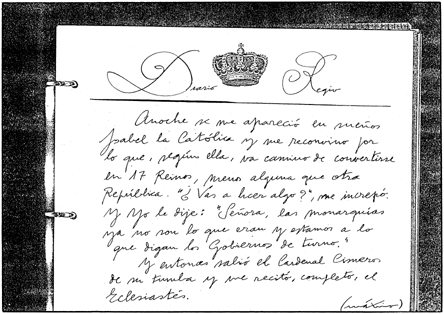 Diario Regio
Anoche se me apareció en sueños
Isabel la Católica y me reconvino por
lo que, según ella, va camino de convertirse
en 17 Reinos, menos alguna que otra
República. "¿Vas a hacer algo?", me increpó.
Y yo le dije: "Señora, las monarquías
ya no son lo que eran y estamos a lo
que digan los Gobiernos de turno."
Y entonces salió el Cardenal Cisneros
de su tumba y me recitó, completo, el
Eclesiastés.
(máximo)